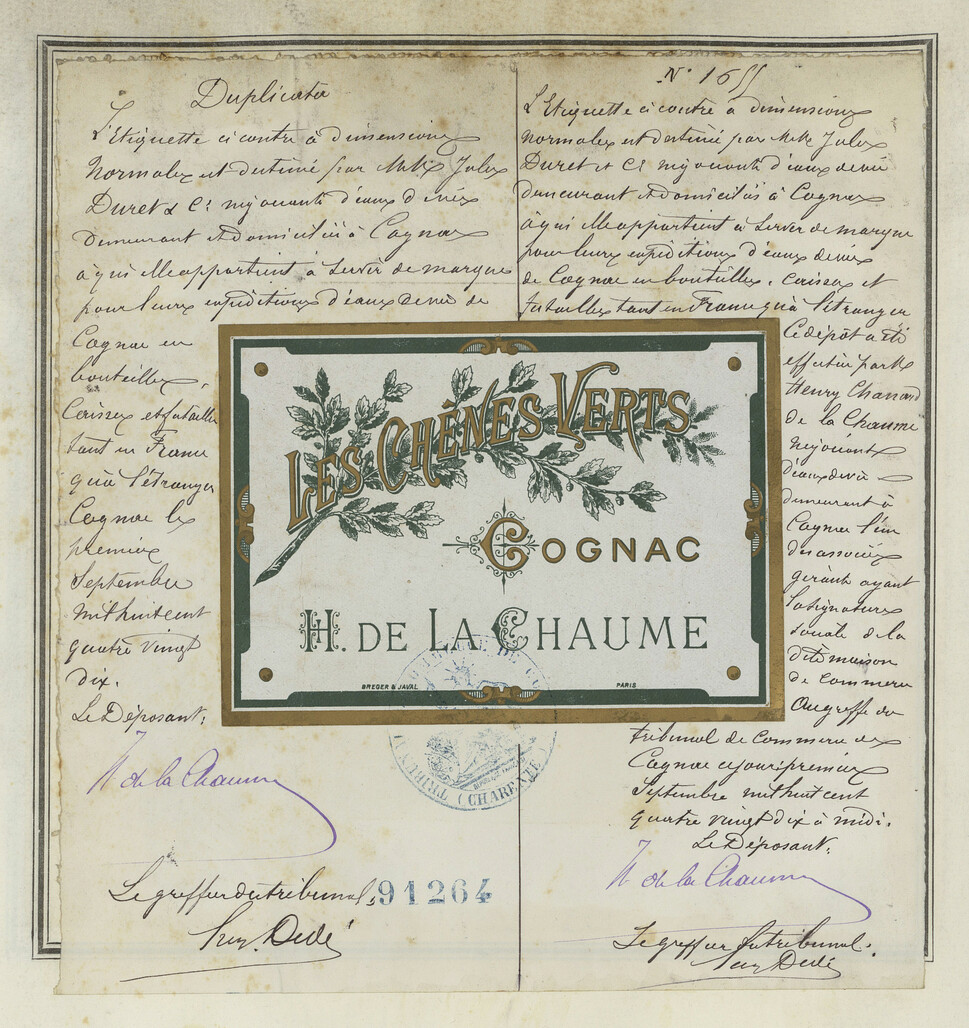 Duplicata
L'Etiquette ci contre à dimensions
Normales est destiné par MM Jules
Duret & Cie négociants d'eaux de vie
demeurant et domiciliés à Cognac
à qui elle appartient à servir de marque
pour leurs expéditions d'eaux de vie de
Cognac en
bouteilles,
Caisses et futailles
tant en France
qu'à l'étranger
Cognac le
premier
Septembre
mil huit cent
quatre vingt
dix.
Le Déposant,
H de la Chaume
Le greffier du tribunal,
Dédé
91264
N° 1655
L'Etiquette ci contre à dimensions
Normales est destiné par MM Jules
Duret et Cie négociants d'eaux de vie
demeurant et domiciliés à Cognac
à qui elle appartient à servir de marque
pour leurs expéditions d'eaux de vie
de Cognac en bouteilles, caisses et
futailles tant en France qu'à l'étranger
Ce dépôt a été
effectué par Mr
Henry
de la Chaume
négociant
d'eaux de vie
demeurant à
Cognac l'un
des associés
gérants ayant
la signature
sociale de la
dite maison
de commerce
Au greffe du
tribunal de commerce de
Cognac ce jour premier
Septembre mil huit cent
quatre vingt dix à midi.
Le Déposant,
H de la Chaume
Le greffier du tribunal.
Dédé
LES CHÊNES VERTS
COGNAC
H. DE LA CHAUME
BREGER & JAVAL
PARIS
(CHARENTE)